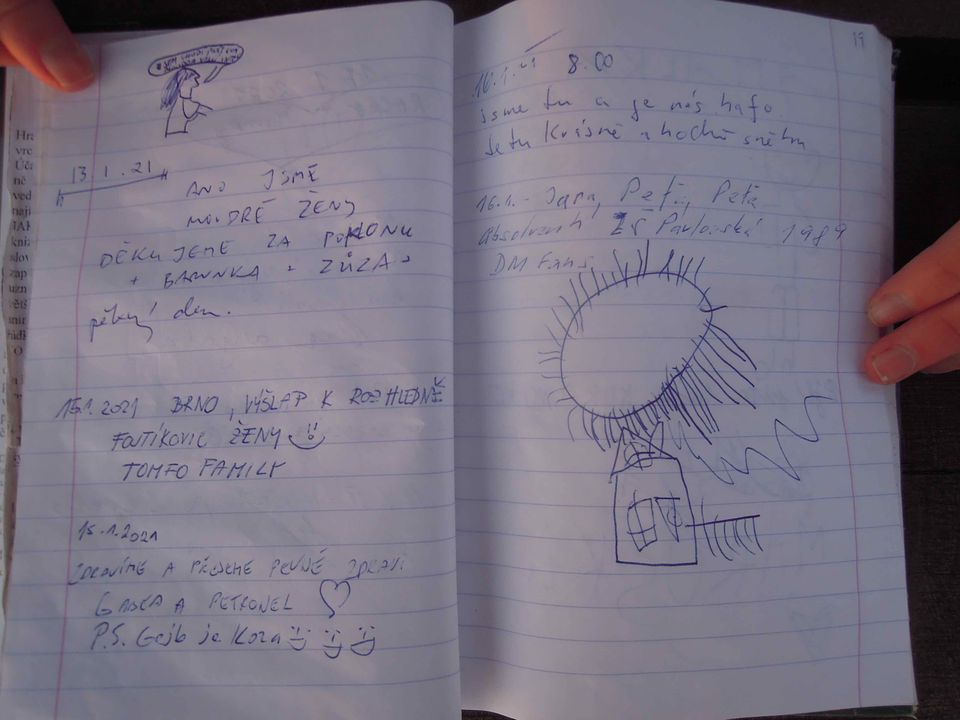 13.1.21
ANO JSME
MOUDRÉ ŽENY
DĚKUJEME ZA POKLONU
+ BARUNKA + ZŮZA
pěkný den.
15.1.2021 BRNO, VÝŠLAP K ROZHLEDNĚ
FOJTÍKOVIC ŽENY
TOMFO FAMILY
15.1.2021
ZDRAVÍME A PŘEJEME PEVNÉ ZDRAVÍ
GABČA A PETRONEL
P.S. Gejb je Koza
19
16.1.21 8.00
jsme tu a je nás hafo.
Je tu krásně a hodně sněhu
16.1. - Jara, Peťi, Peťa
Absolventi ZŠ Pavlovská 1989
DM Fans